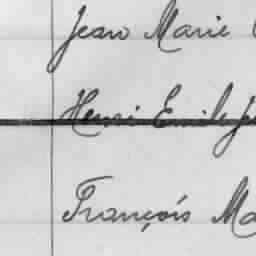 Jean Marie
Henri Emile
François